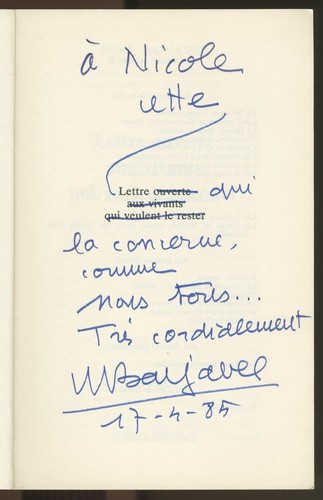 à Nicole
cette
Lettre ouverte qui
aux vivants
qui veulent le rester
la concerne,
comme
nous tous...
Très cordialement
Barjavel
17-4-85